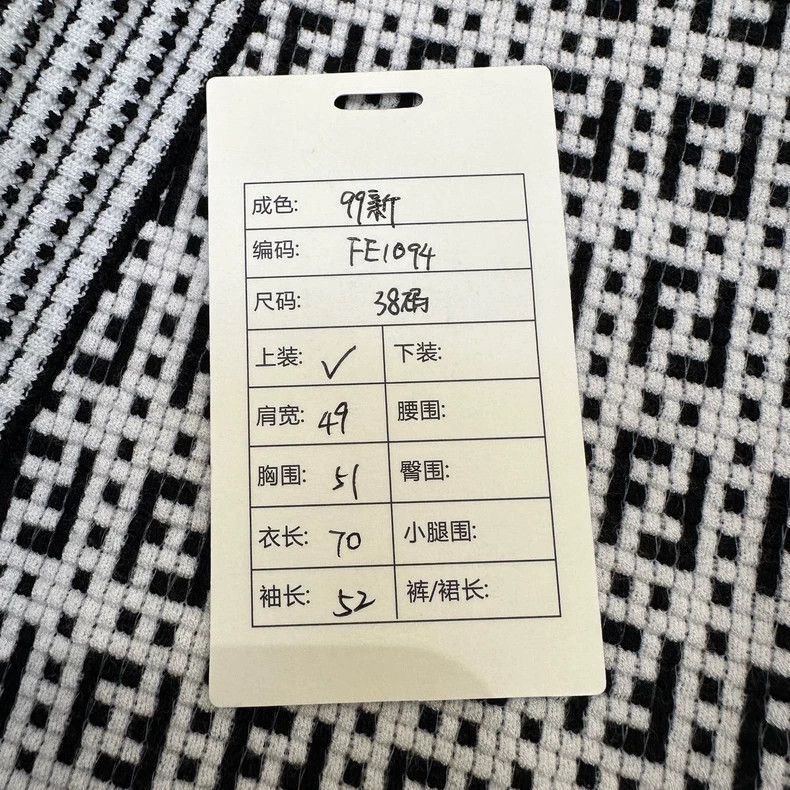 成色: 99新
编码: FE1094
尺码: 38码
上装: ✓ 下装:
肩宽: 49 腰围:
胸围: 51 臀围:
衣长: 70 小腿围:
袖长: 52 裤/裙长: